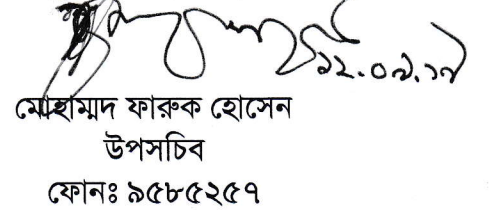 ১২.০৯.১৭
মোহাম্মদ ফারুক হোসেন
উপসচিব
ফোনঃ ৯৫৮৫২৫৭